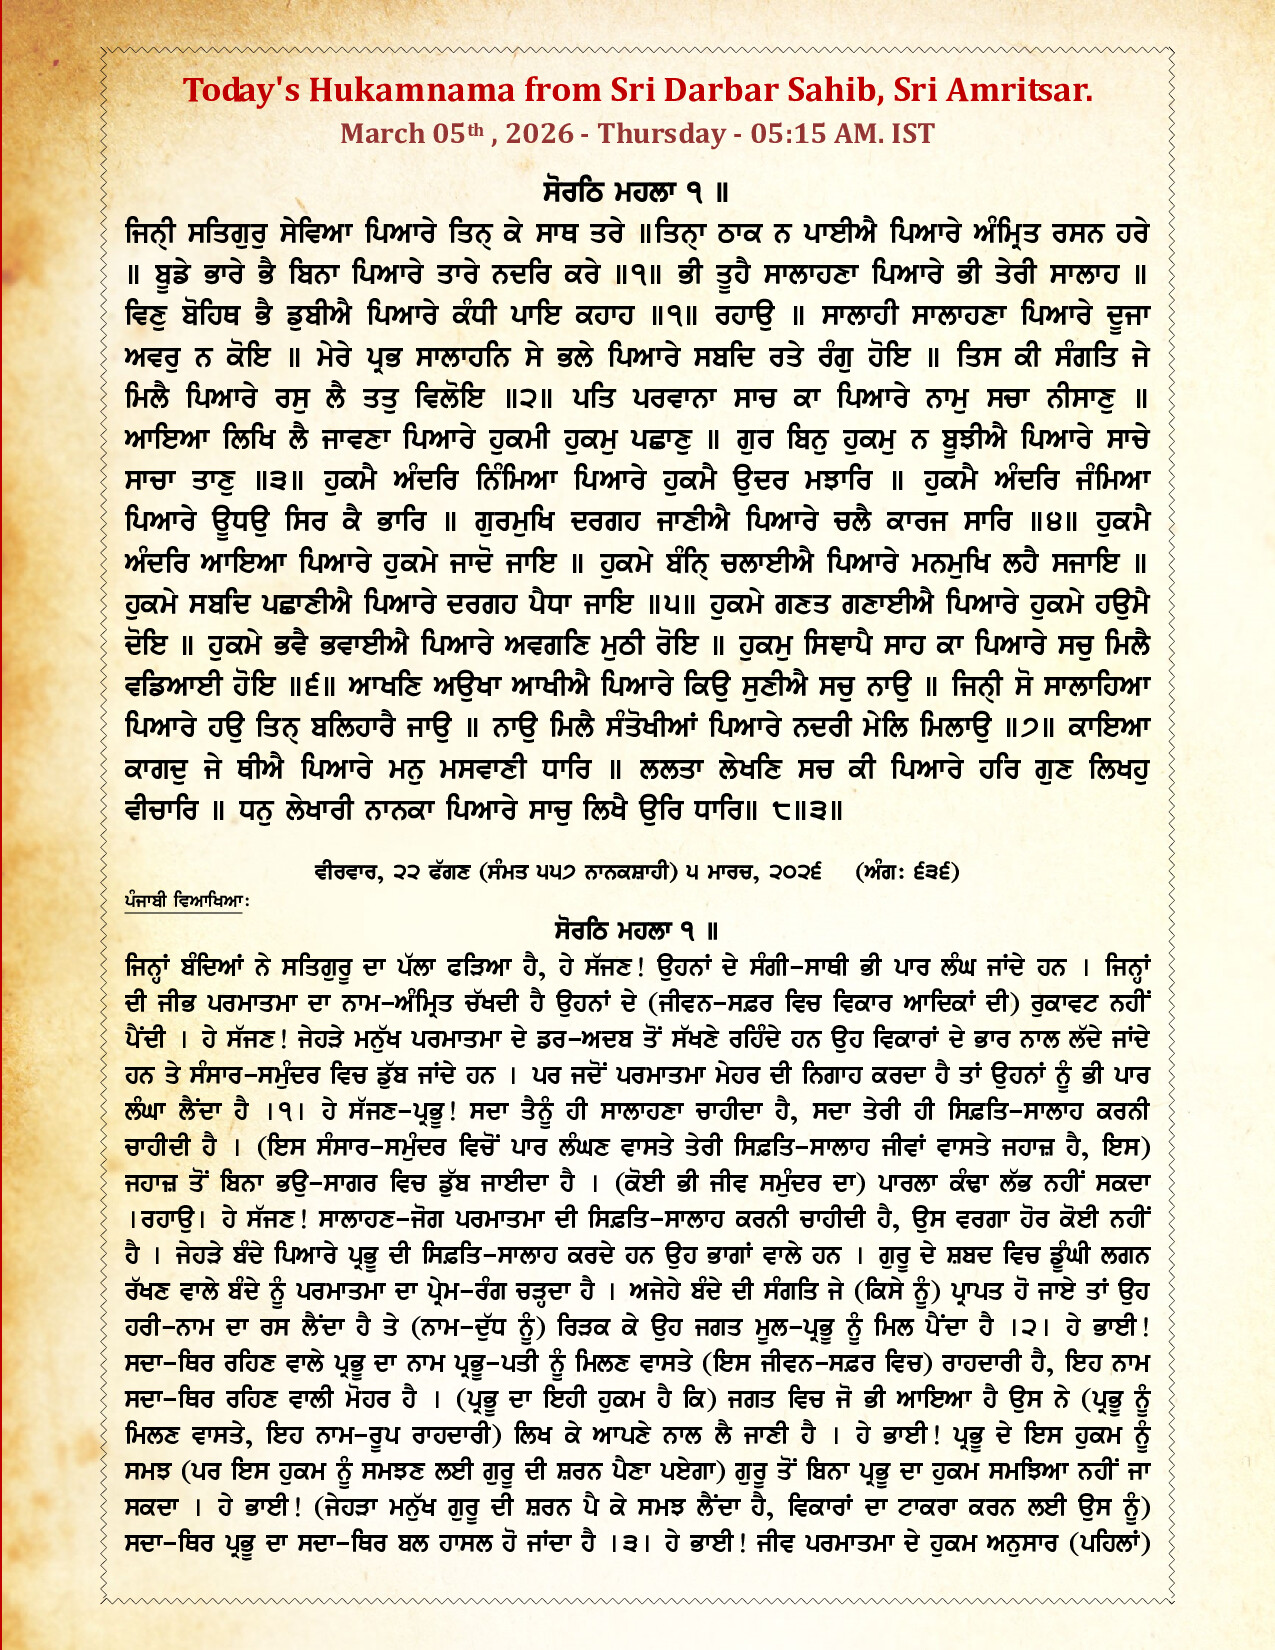 Today's Hukamnama from Sri Darbar Sahib, Sri Amritsar.
March 05th , 2026 - Thursday - 05:15 AM. IST
ਸੋਰਠਿ ਮਹਲਾ ੧ ॥
ਜਿਨੀ੍ ਸਤਿਗੁਰੁ ਸੇਵਿਆ ਪਿਆਰੇ ਤਿਨ੍ ਕੇ ਸਾਥ ਤਰੇ ॥ਤਿਨਾ੍ ਠਾਕ ਨ ਪਾਈਐ ਪਿਆਰੇ ਅੰਮ੍ਰਿਤ ਰਸਨ ਹਰੇ
॥ ਬੂਡੇ ਭਾਰੇ ਭੈ ਬਿਨਾ ਪਿਆਰੇ ਤਾਰੇ ਨਦਰਿ ਕਰੇ ॥੧॥ ਭੀ ਤੂਹੈ ਸਾਲਾਹਣਾ ਪਿਆਰੇ ਭੀ ਤੇਰੀ ਸਾਲਾਹ ॥
ਵਿਣੁ ਬੋਹਿਥ ਭੈ ਡੁਬੀਐ ਪਿਆਰੇ ਕੰਧੀ ਪਾਇ ਕਹਾਹ ॥੧॥ ਰਹਾਉ ॥ ਸਾਲਾਹੀ ਸਾਲਾਹਣਾ ਪਿਆਰੇ ਦੂਜਾ
ਅਵਰੁ ਨ ਕੋਇ ॥ ਮੇਰੇ ਪ੍ਰਭ ਸਾਲਾਹਨਿ ਸੇ ਭਲੇ ਪਿਆਰੇ ਸਬਦਿ ਰਤੇ ਰੰਗੁ ਹੋਇ ॥ ਤਿਸ ਕੀ ਸੰਗਤਿ ਜੇ
ਮਿਲੈ ਪਿਆਰੇ ਰਸੁ ਲੈ ਤਤੁ ਵਿਲੋਇ ॥੨॥ ਪਤਿ ਪਰਵਾਨਾ ਸਾਚ ਕਾ ਪਿਆਰੇ ਨਾਮੁ ਸਚਾ ਨੀਸਾਣੁ ॥
ਆਇਆ ਲਿਖਿ ਲੈ ਜਾਵਣਾ ਪਿਆਰੇ ਹੁਕਮੀ ਹੁਕਮੁ ਪਛਾਣੁ ॥ ਗੁਰ ਬਿਨੁ ਹੁਕਮੁ ਨ ਬੂਝੀਐ ਪਿਆਰੇ ਸਾਚੇ
ਸਾਚਾ ਤਾਣੁ ॥੩॥ ਹੁਕਮੈ ਅੰਦਰਿ ਨਿੰਮਿਆ ਪਿਆਰੇ ਹੁਕਮੈ ਉਦਰ ਮਝਾਰਿ ॥ ਹੁਕਮੈ ਅੰਦਰਿ ਜੰਮਿਆ
ਪਿਆਰੇ ਊਧਉ ਸਿਰ ਕੈ ਭਾਰਿ ॥ ਗੁਰਮੁਖਿ ਦਰਗਹ ਜਾਣੀਐ ਪਿਆਰੇ ਚਲੈ ਕਾਰਜ ਸਾਰਿ ॥੪॥ ਹੁਕਮੈ
ਅੰਦਰਿ ਆਇਆ ਪਿਆਰੇ ਹੁਕਮੇ ਜਾਦੋ ਜਾਇ ॥ ਹੁਕਮੇ ਬੰਨਿ੍ ਚਲਾਈਐ ਪਿਆਰੇ ਮਨਮੁਖਿ ਲਹੈ ਸਜਾਇ ॥
ਹੁਕਮੇ ਸਬਦਿ ਪਛਾਣੀਐ ਪਿਆਰੇ ਦਰਗਹ ਪੈਧਾ ਜਾਇ ॥੫॥ ਹੁਕਮੇ ਗਣਤ ਗਣਾਈਐ ਪਿਆਰੇ ਹੁਕਮੇ ਹਉਮੈ
ਦੋਇ ॥ ਹੁਕਮੇ ਭਵੈ ਭਵਾਈਐ ਪਿਆਰੇ ਅਵਗਣਿ ਮੁਠੀ ਰੋਇ ॥ ਹੁਕਮੁ ਸਿਞਾਪੈ ਸਾਹ ਕਾ ਪਿਆਰੇ ਸਚੁ ਮਿਲੈ
ਵਡਿਆਈ ਹੋਇ ॥੬॥ ਆਖਣਿ ਅਉਖਾ ਆਖੀਐ ਪਿਆਰੇ ਕਿਉ ਸੁਣੀਐ ਸਚੁ ਨਾਉ ॥ ਜਿਨੀ੍ ਸੋ ਸਾਲਾਹਿਆ
ਪਿਆਰੇ ਹਉ ਤਿਨ੍ ਬਲਿਹਾਰੈ ਜਾਉ ॥ ਨਾਉ ਮਿਲੈ ਸੰਤੋਖੀਆਂ ਪਿਆਰੇ ਨਦਰੀ ਮੇਲਿ ਮਿਲਾਉ ॥੭॥ ਕਾਇਆ
ਕਾਗਦੁ ਜੇ ਥੀਐ ਪਿਆਰੇ ਮਨੁ ਮਸਵਾਣੀ ਧਾਰਿ ॥ ਲਲਤਾ ਲੇਖਣਿ ਸਚ ਕੀ ਪਿਆਰੇ ਹਰਿ ਗੁਣ ਲਿਖਹੁ
ਵੀਚਾਰਿ ॥ ਧਨੁ ਲੇਖਾਰੀ ਨਾਨਕਾ ਪਿਆਰੇ ਸਾਚੁ ਲਿਖੈ ਉਰਿ ਧਾਰਿ॥ ੮॥੩॥
ਵੀਰਵਾਰ, ੨੨ ਫੱਗਣ (ਸੰਮਤ ੫੫੭ ਨਾਨਕਸ਼ਾਹੀ) ੫ ਮਾਰਚ, ੨੦੨੬ (ਅੰਗ: ੬੩੬)
ਪੰਜਾਬੀ ਵਿਆਖਿਆ:
ਸੋਰਠਿ ਮਹਲਾ ੧ ॥
ਜਿਨ੍ਹਾਂ ਬੰਦਿਆਂ ਨੇ ਸਤਿਗੁਰੂ ਦਾ ਪੱਲਾ ਫੜਿਆ ਹੈ, ਹੇ ਸੱਜਣ! ਉਹਨਾਂ ਦੇ ਸੰਗੀ-ਸਾਥੀ ਭੀ ਪਾਰ ਲੰਘ ਜਾਂਦੇ ਹਨ । ਜਿਨ੍ਹਾਂ
ਦੀ ਜੀਭ ਪਰਮਾਤਮਾ ਦਾ ਨਾਮ-ਅੰਮ੍ਰਿਤ ਚੱਖਦੀ ਹੈ ਉਹਨਾਂ ਦੇ (ਜੀਵਨ-ਸਫ਼ਰ ਵਿਚ ਵਿਕਾਰ ਆਦਿਕਾਂ ਦੀ) ਰੁਕਾਵਟ ਨਹੀਂ
ਪੈਂਦੀ । ਹੇ ਸੱਜਣ! ਜੇਹੜੇ ਮਨੁੱਖ ਪਰਮਾਤਮਾ ਦੇ ਡਰ-ਅਦਬ ਤੋਂ ਸੱਖਣੇ ਰਹਿੰਦੇ ਹਨ ਉਹ ਵਿਕਾਰਾਂ ਦੇ ਭਾਰ ਨਾਲ ਲੱਦੇ ਜਾਂਦੇ
ਹਨ ਤੇ ਸੰਸਾਰ-ਸਮੁੰਦਰ ਵਿਚ ਡੁੱਬ ਜਾਂਦੇ ਹਨ । ਪਰ ਜਦੋਂ ਪਰਮਾਤਮਾ ਮੇਹਰ ਦੀ ਨਿਗਾਹ ਕਰਦਾ ਹੈ ਤਾਂ ਉਹਨਾਂ ਨੂੰ ਭੀ ਪਾਰ
ਲੰਘਾ ਲੈਂਦਾ ਹੈ ।੧। ਹੇ ਸੱਜਣ-ਪ੍ਰਭੂ! ਸਦਾ ਤੈਨੂੰ ਹੀ ਸਾਲਾਹਣਾ ਚਾਹੀਦਾ ਹੈ, ਸਦਾ ਤੇਰੀ ਹੀ ਸਿਫ਼ਤਿ-ਸਾਲਾਹ ਕਰਨੀ
ਚਾਹੀਦੀ ਹੈ । (ਇਸ ਸੰਸਾਰ-ਸਮੁੰਦਰ ਵਿਚੋਂ ਪਾਰ ਲੰਘਣ ਵਾਸਤੇ ਤੇਰੀ ਸਿਫ਼ਤਿ-ਸਾਲਾਹ ਜੀਵਾਂ ਵਾਸਤੇ ਜਹਾਜ਼ ਹੈ, ਇਸ)
ਜਹਾਜ਼ ਤੋਂ ਬਿਨਾ ਭਉ-ਸਾਗਰ ਵਿਚ ਡੁੱਬ ਜਾਈਦਾ ਹੈ । (ਕੋਈ ਭੀ ਜੀਵ ਸਮੁੰਦਰ ਦਾ) ਪਾਰਲਾ ਕੰਢਾ ਲੱਭ ਨਹੀਂ ਸਕਦਾ
।ਰਹਾਉ। ਹੇ ਸੱਜਣ! ਸਾਲਾਹਣ-ਜੋਗ ਪਰਮਾਤਮਾ ਦੀ ਸਿਫ਼ਤਿ-ਸਾਲਾਹ ਕਰਨੀ ਚਾਹੀਦੀ ਹੈ, ਉਸ ਵਰਗਾ ਹੋਰ ਕੋਈ ਨਹੀਂ
ਹੈ । ਜੇਹੜੇ ਬੰਦੇ ਪਿਆਰੇ ਪ੍ਰਭੂ ਦੀ ਸਿਫ਼ਤਿ-ਸਾਲਾਹ ਕਰਦੇ ਹਨ ਉਹ ਭਾਗਾਂ ਵਾਲੇ ਹਨ । ਗੁਰੂ ਦੇ ਸ਼ਬਦ ਵਿਚ ਡੂੰਘੀ ਲਗਨ
ਰੱਖਣ ਵਾਲੇ ਬੰਦੇ ਨੂੰ ਪਰਮਾਤਮਾ ਦਾ ਪ੍ਰੇਮ-ਰੰਗ ਚੜ੍ਹਦਾ ਹੈ । ਅਜੇਹੇ ਬੰਦੇ ਦੀ ਸੰਗਤਿ ਜੇ (ਕਿਸੇ ਨੂੰ) ਪ੍ਰਾਪਤ ਹੋ ਜਾਏ ਤਾਂ ਉਹ
ਹਰੀ-ਨਾਮ ਦਾ ਰਸ ਲੈਂਦਾ ਹੈ ਤੇ (ਨਾਮ-ਦੁੱਧ ਨੂੰ) ਰਿੜਕ ਕੇ ਉਹ ਜਗਤ ਮੂਲ-ਪ੍ਰਭੂ ਨੂੰ ਮਿਲ ਪੈਂਦਾ ਹੈ ।੨। ਹੇ ਭਾਈ!
ਸਦਾ-ਥਿਰ ਰਹਿਣ ਵਾਲੇ ਪ੍ਰਭੂ ਦਾ ਨਾਮ ਪ੍ਰਭੂ-ਪਤੀ ਨੂੰ ਮਿਲਣ ਵਾਸਤੇ (ਇਸ ਜੀਵਨ-ਸਫ਼ਰ ਵਿਚ) ਰਾਹਦਾਰੀ ਹੈ, ਇਹ ਨਾਮ
ਸਦਾ-ਥਿਰ ਰਹਿਣ ਵਾਲੀ ਮੋਹਰ ਹੈ । (ਪ੍ਰਭੂ ਦਾ ਇਹੀ ਹੁਕਮ ਹੈ ਕਿ) ਜਗਤ ਵਿਚ ਜੋ ਭੀ ਆਇਆ ਹੈ ਉਸ ਨੇ (ਪ੍ਰਭੂ ਨੂੰ
ਮਿਲਣ ਵਾਸਤੇ, ਇਹ ਨਾਮ-ਰੂਪ ਰਾਹਦਾਰੀ) ਲਿਖ ਕੇ ਆਪਣੇ ਨਾਲ ਲੈ ਜਾਣੀ ਹੈ । ਹੇ ਭਾਈ! ਪ੍ਰਭੂ ਦੇ ਇਸ ਹੁਕਮ ਨੂੰ
ਸਮਝ (ਪਰ ਇਸ ਹੁਕਮ ਨੂੰ ਸਮਝਣ ਲਈ ਗੁਰੂ ਦੀ ਸ਼ਰਨ ਪੈਣਾ ਪਏਗਾ) ਗੁਰੂ ਤੋਂ ਬਿਨਾ ਪ੍ਰਭੂ ਦਾ ਹੁਕਮ ਸਮਝਿਆ ਨਹੀਂ ਜਾ
ਸਕਦਾ । ਹੇ ਭਾਈ! (ਜੇਹੜਾ ਮਨੁੱਖ ਗੁਰੂ ਦੀ ਸ਼ਰਨ ਪੈ ਕੇ ਸਮਝ ਲੈਂਦਾ ਹੈ, ਵਿਕਾਰਾਂ ਦਾ ਟਾਕਰਾ ਕਰਨ ਲਈ ਉਸ ਨੂੰ)
ਸਦਾ-ਥਿਰ ਪ੍ਰਭੂ ਦਾ ਸਦਾ-ਥਿਰ ਬਲ ਹਾਸਲ ਹੋ ਜਾਂਦਾ ਹੈ ।੩। ਹੇ ਭਾਈ! ਜੀਵ ਪਰਮਾਤਮਾ ਦੇ ਹੁਕਮ ਅਨੁਸਾਰ (ਪਹਿਲਾਂ)